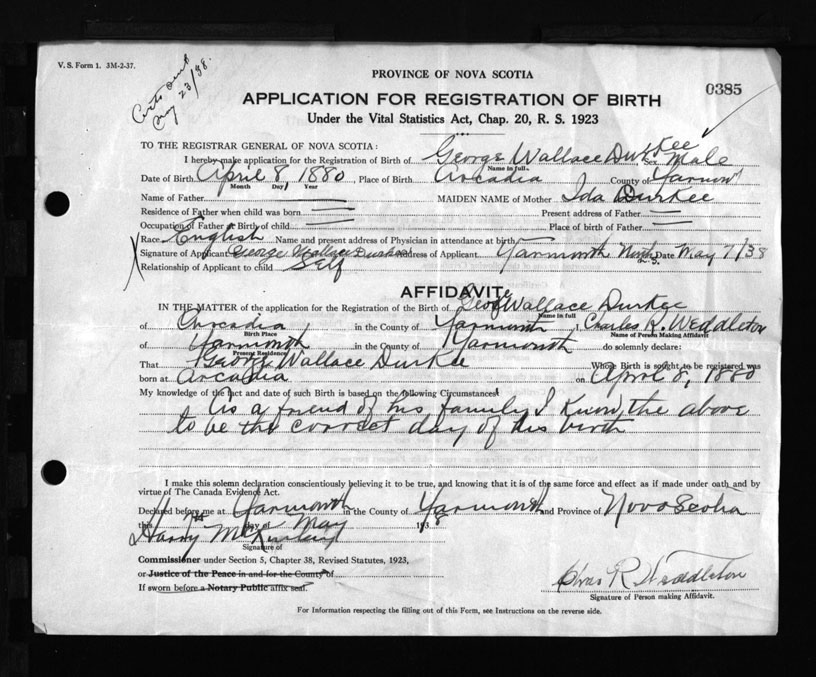 V. S. Form 1. 3M-2-37.
Certs sent
May 23/38.
0385
PROVINCE OF NOVA SCOTIA
APPLICATION FOR REGISTRATION OF BIRTH
Under the Vital Statistics Act, Chap. 20, R. S. 1923
TO THE REGISTRAR GENERAL OF NOVA SCOTIA:
I hereby make application for the Registration of Birth of George Wallace Durkee Sex Male
Name in full
Date of Birth April 8, 1880, Place of Birth Arcadia County of Yarmouth
Month Day Year
Name of Father MAIDEN NAME of Mother Ida Durkee
Residence of Father when child was born Present address of Father
Occupation of Father at Birth of child Place of birth of Father
Race English Name and present address of Physician in attendance at birth
Signature of Applicant George Wallace Durkee Address of Applicant Yarmouth North N.S. Date May 7/38
Relationship of Applicant to child Self
AFFIDAVIT
IN THE MATTER of the application for the Registration of the Birth of George Wallace Durkee
Name in full
of Arcadia in the County of Yarmouth I, Charles R. Weddleton
Birth Place Name of Person Making Affidavit
of Yarmouth in the County of Yarmouth do solemnly declare:
Present Residence
That George Wallace Durkee Whose Birth is sought to be registered was
born at Arcadia on April 8, 1880
My knowledge of the fact and date of such Birth is based on the following Circumstances
As a friend of his family I know the above
to be the correct day of his birth
I make this solemn declaration conscientiously believing it to be true, and knowing that it is of the same force and effect as if made under oath and by
virtue of The Canada Evidence Act.
Declared before me at Yarmouth in the County of Yarmouth and Province of Nova Scotia
this 7th day of May 1938
Harry McKinley
Signature of
Commissioner under Section 5, Chapter 38, Revised Statutes, 1923,
or Justice of the Peace in and for the County of
If sworn before a Notary Public affix seal.
Chas R Weddleton
Signature of Person making Affidavit.
For Information respecting the filling out of this Form, see Instructions on the reverse side.